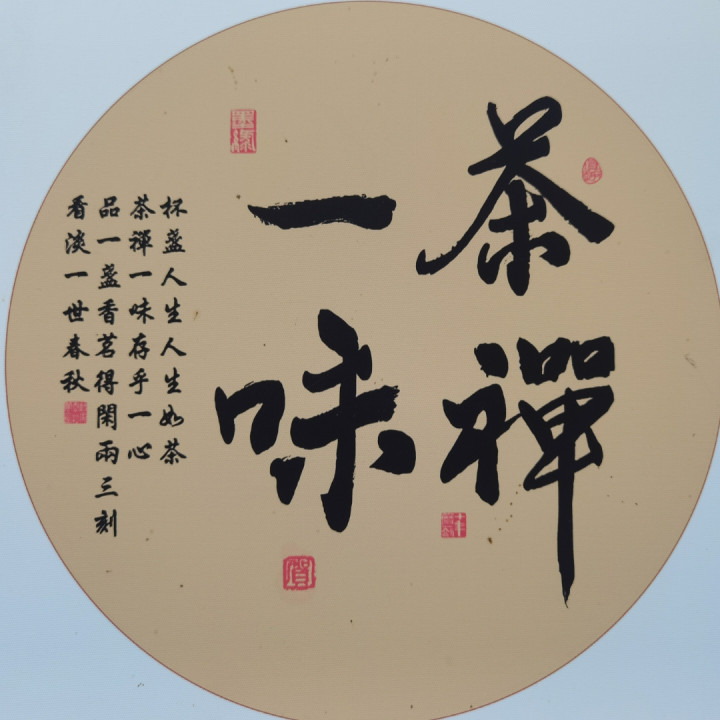 茶禪
一味
杯盞人生人生如茶
茶禪一味存乎一心
品一盞香茗得閑兩三刻
看淡一世春秋